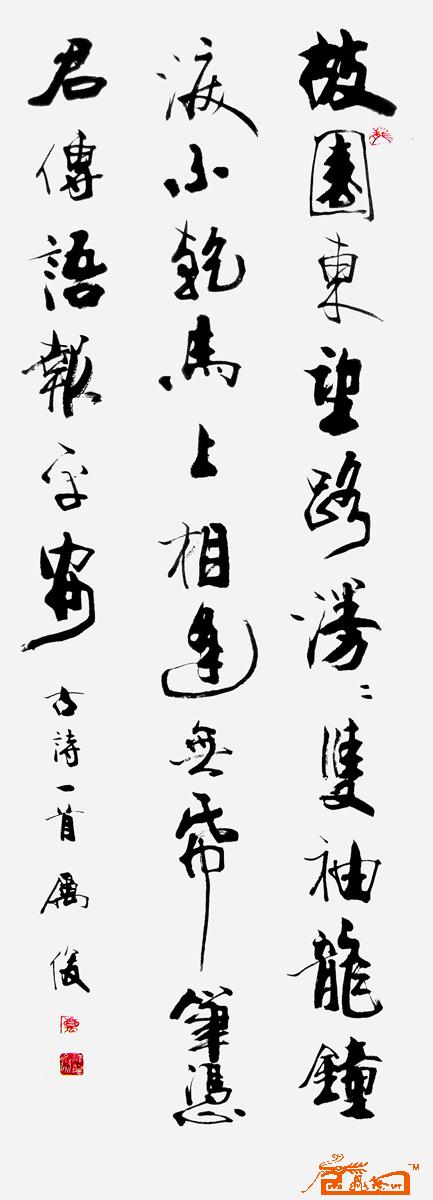 故園東望路漫〻雙袖龍鍾
淚不乾馬上相逢無帋筆憑
君傳語報平安 古詩一首